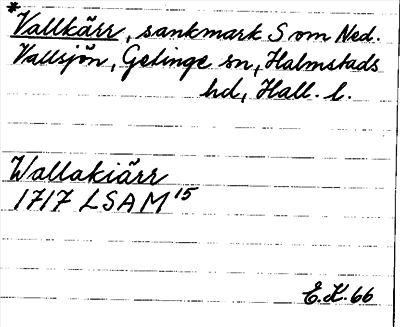 *Vallkärr, sankmark S om Ned.
Vallsjön, Getinge sn, Halmstads
hd, Hall. l.
Wallakiärr
1717 LSAM 15
E.K. 66